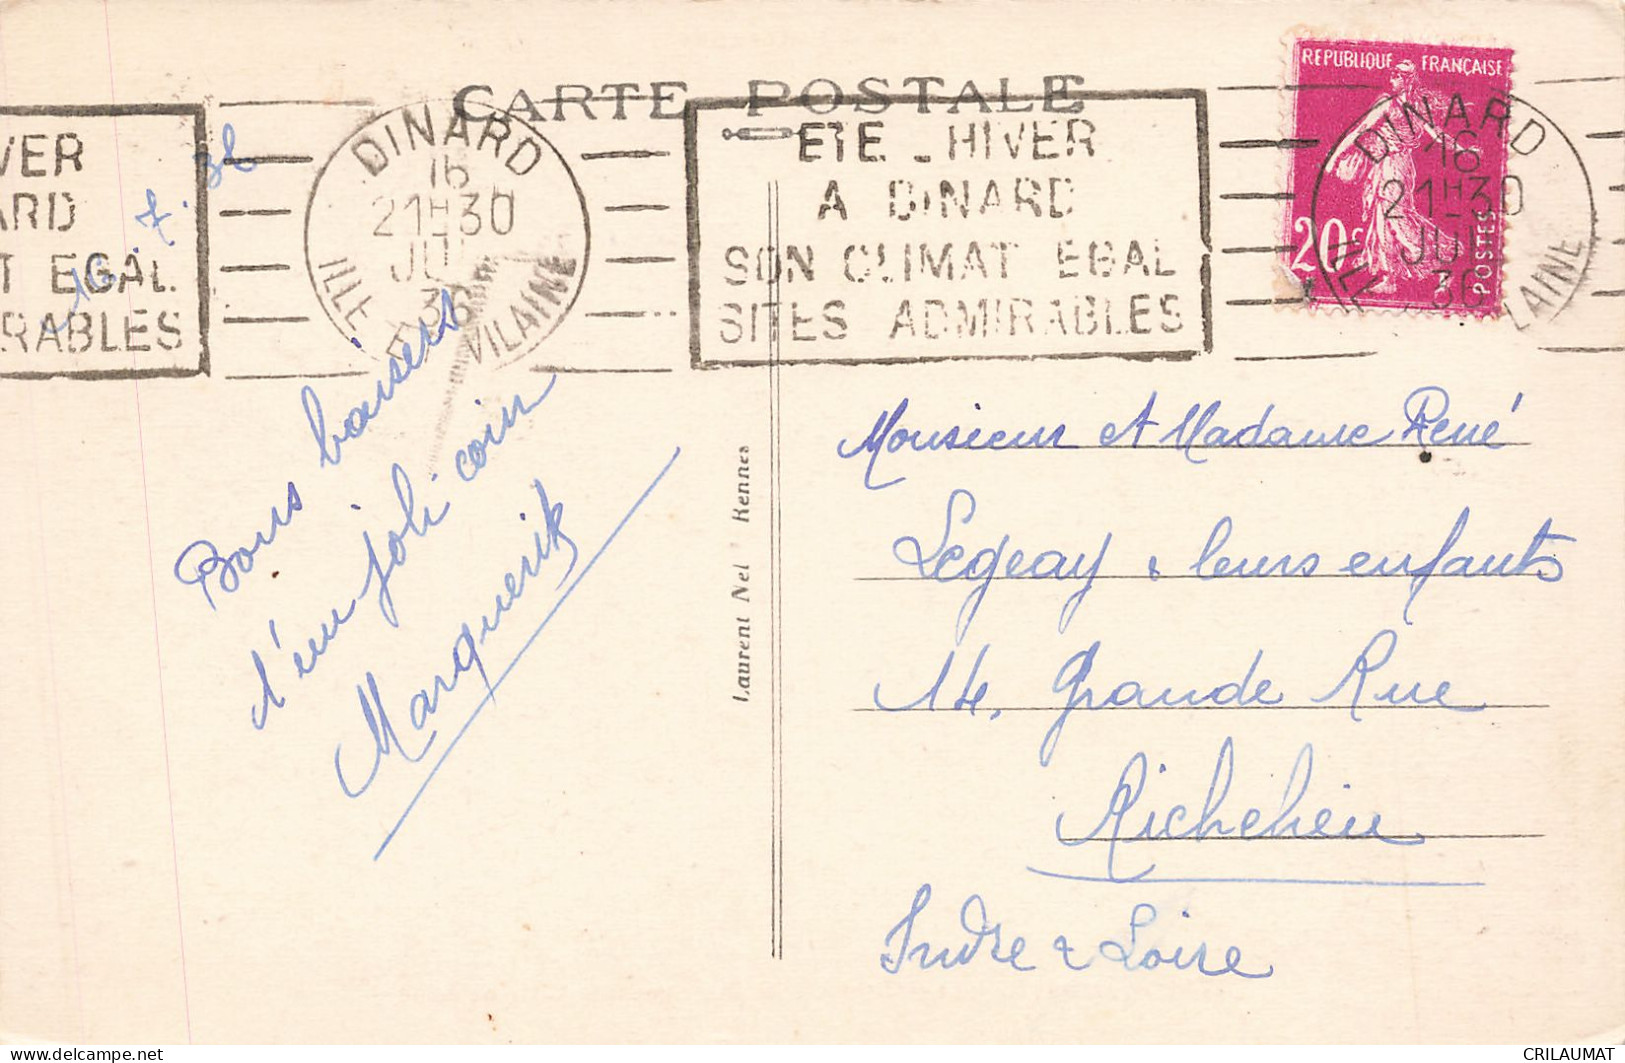 CARTE POSTALE
REPUBLIQUE FRANÇAISE
20c
POSTES
DINARD
16
21H30
JUI
36
ILLE VILAINE
ETE _ HIVER
A DINARD
SON CLIMAT EGAL
SITES ADMIRABLES
DINARD
16
21H30
JUI
36
ILLE
LAINE
VER
ARD
T EGAL.
RABLES
16.7.36
Bons baisers
d'un joli coin
Marguerite
Laurent Nel Rennes
Monsieur et Madame René
Legeay & leurs enfants
14, Grande Rue
Richelieu
Indre & Loire
delcampe.net
CRILAUMAT